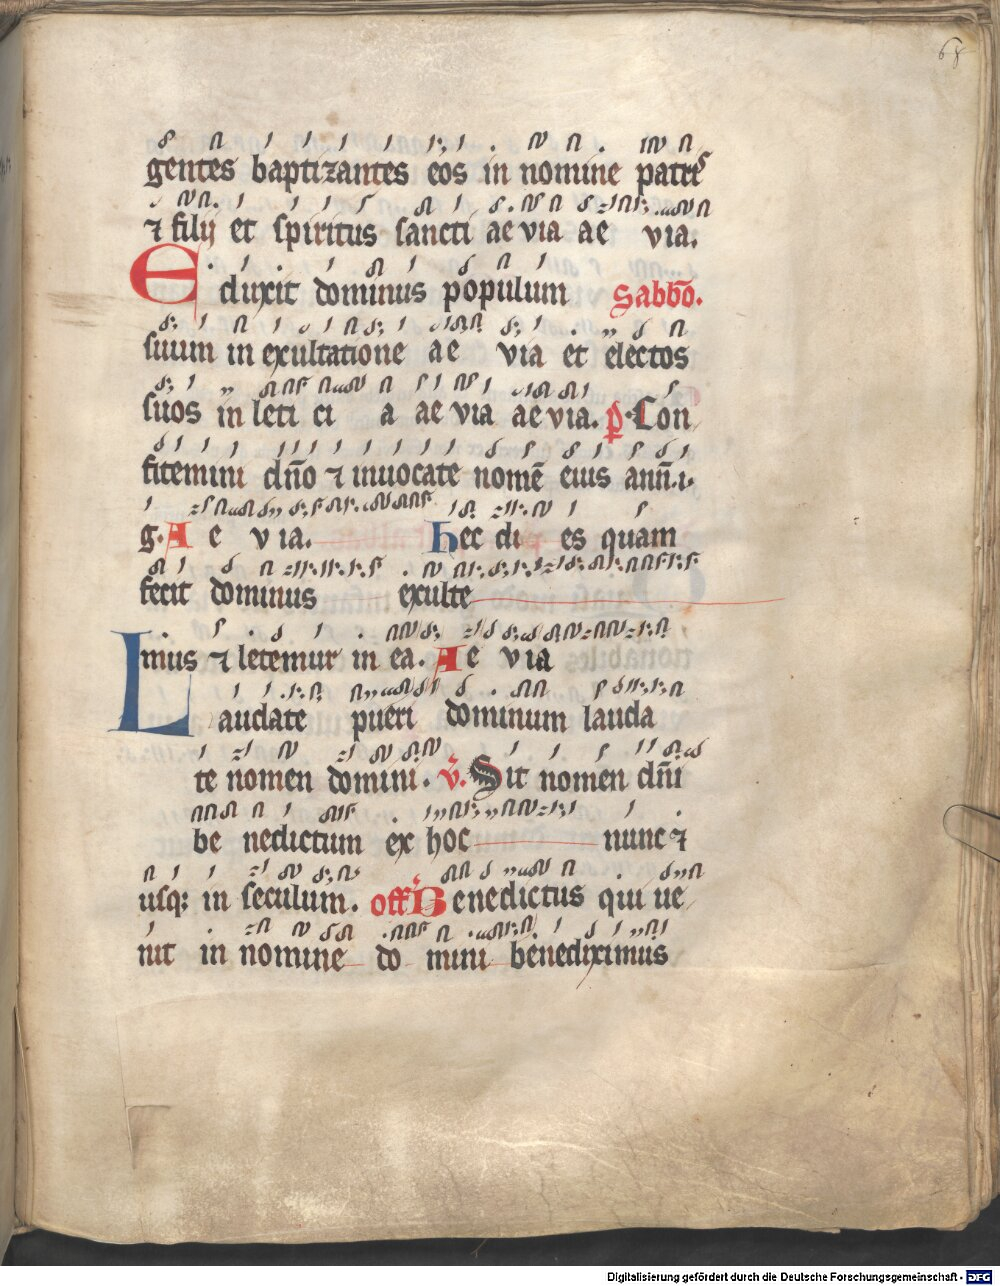 68
gentes baptizantes eos in nomine patris
⁊ filij et spiritus sancti ae via ae via.
Eduxit dominus populum Sabbo.
suum in exultatione ae via et electos
suos in leti ci a ae via ae via. p. Con
fitemini dn̄o ⁊ inuocate nomē eius ann̄.i.
g. A e via. hec di es quam
fecit dominus exulte
mus ⁊ letemur in ea. Ae via
Laudate pueri dominum lauda
te nomen domini. v. Sit nomen dn̄i
be nedictum ex hoc nunc ⁊
usq; in seculum. off Benedictus qui ue
nit in nomine do mini benediximus
Digitalisierung gefördert durch die Deutsche Forschungsgemeinschaft - DFG